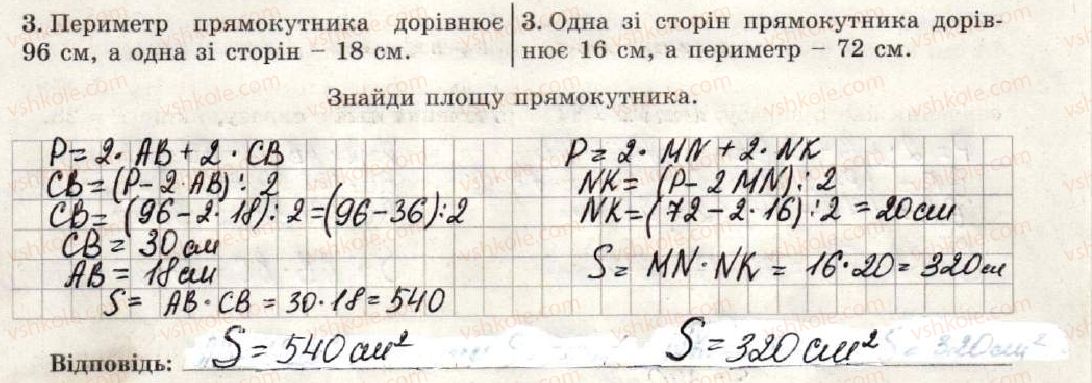 3. Периметр прямокутника дорівнює
96 см, а одна зі сторін – 18 см.
3. Одна зі сторін прямокутника дорів-
нює 16 см, а периметр – 72 см.
Знайди площу прямокутника.
P = 2 · AB + 2 · CB
CB = (P - 2 · AB) : 2
CB = (96 - 2 · 18) : 2 = (96 - 36) : 2
CB = 30 см
AB = 18 см
S = AB · CB = 30 · 18 = 540
P = 2 · MN + 2 · NK
NK = (P - 2 MN) : 2
NK = (72 - 2 · 16) : 2 = 20 см
S = MN · NK = 16 · 20 = 320 см
Відповідь: S = 540 см² S = 320 см²
vshkole.com